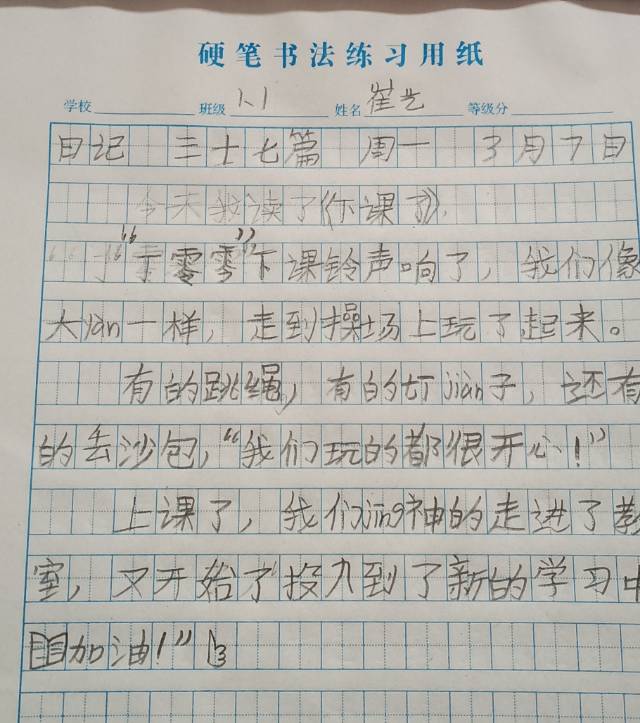 硬笔书法练习用纸
学校 班级 1、1 姓名 崔艺 等级分
日记 三十七篇 周一 3月7日
今天我读了《下课了》.
“丁零零”下课铃声响了，我们像
大yàn一样，走到操场上玩了起来。
有的跳绳，有的打jiàn子，还有
的丢沙包，“我们玩的都很开心！”
上课了，我们jīng神的走进了教
室，又开始了投入到了新的学习中
加油！”